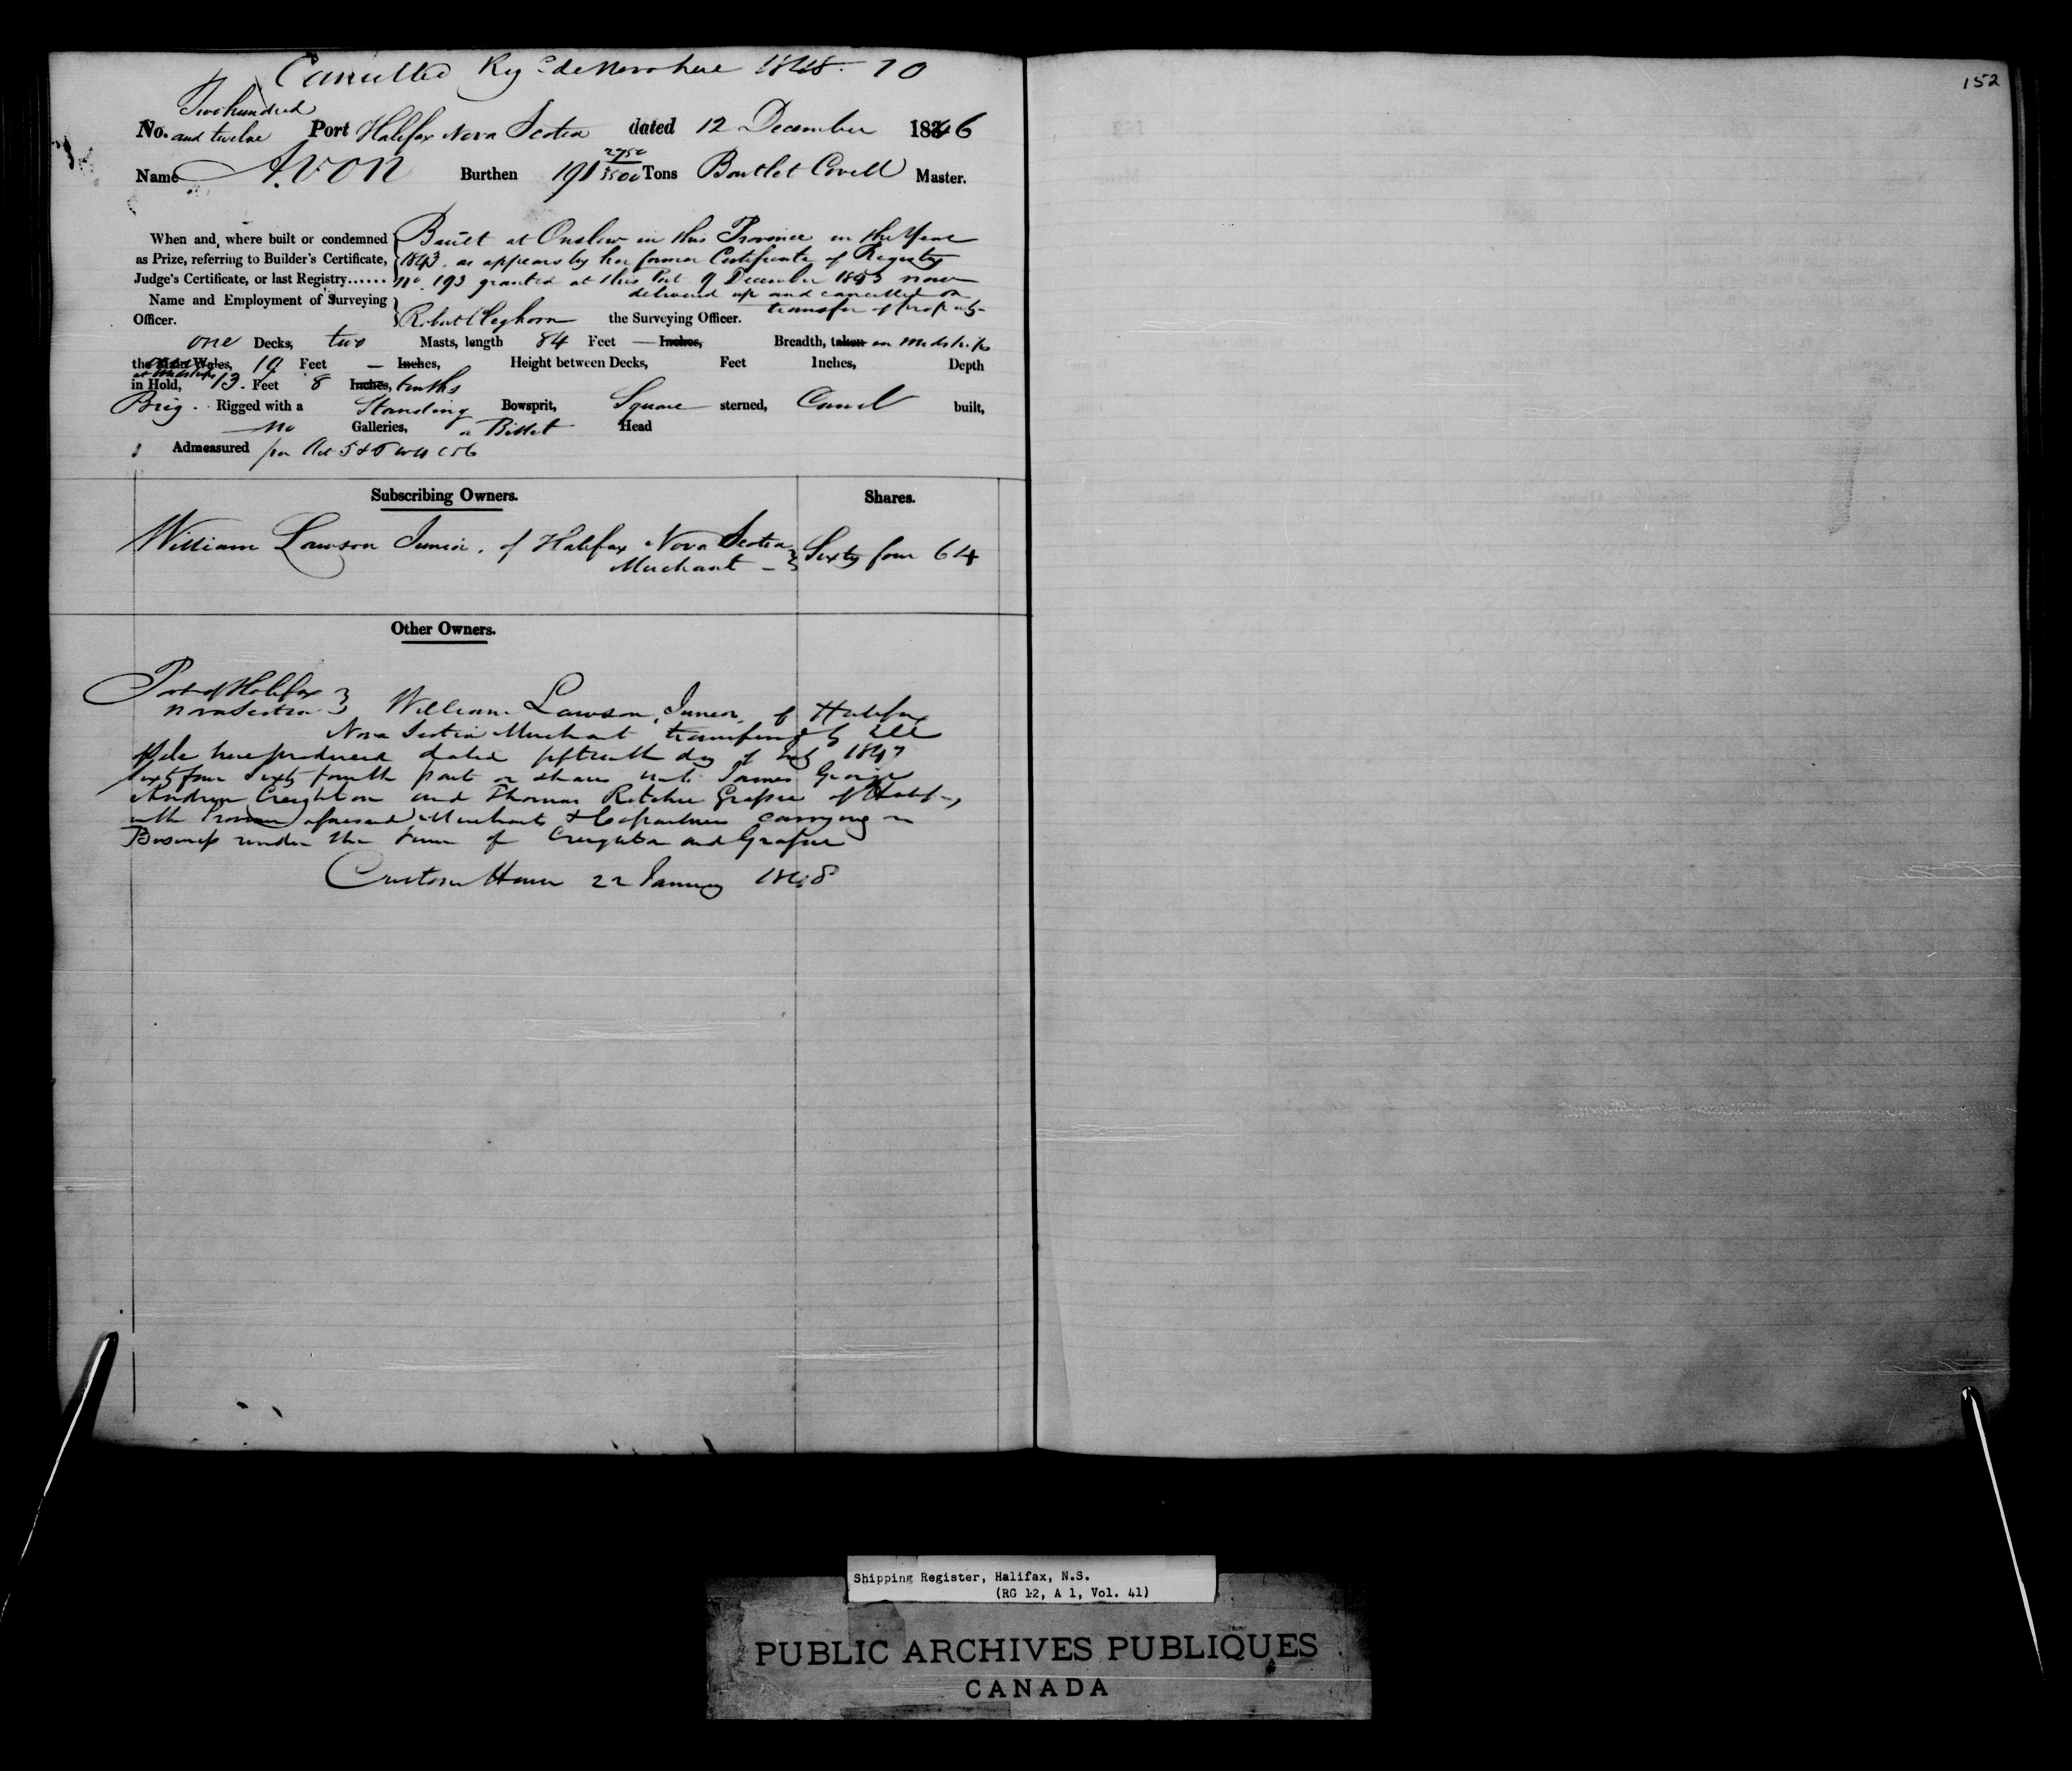 Cancelled Reg.d de Novo here 1848. 10
152
Two hundred
No. and twelve Port Halifax Nova Scotia dated 12 December 1846
Name Avon Burthen 191 2750/3500 Tons Bartlet Covell Master.
When and where built or condemned { Built at Onslow in this Province in the Year
as Prize, referring to Builder's Certificate, 1843. as appears by her former Certificate of Registry
Judge's Certificate, or last Registry...... No. 193 granted at this Port 9 December 1843 now
delivered up and cancelled on
transfer of property
Name and Employment of Surveying
Officer. } Robert Cleghorn the Surveying Officer.
one Decks, two Masts, length 84 Feet — Inches, Breadth, taken in midships
the Main Wales, 19 Feet — Inches, Height between Decks, Feet Inches, Depth
at midships
in Hold, 13. Feet 8 Inches, tenths
Brig. Rigged with a Standing Bowsprit, Square sterned, Carvel built,
no Galleries, a Billet Head
Admeasured per Act 5 & 6 W 4 C 56
Subscribing Owners. Shares.
William Lawson Junior. of Halifax Nova Scotia } Sixty four 64
Merchant —
Other Owners.
Port of Halifax }
Nova Scotia } William Lawson, Junior, of Halifax
Nova Scotia Merchant transferred by Bill
of Sale here produced dated fifteenth day of July 1847
Sixty four Sixty fourth part or shares unto James George
Andrew Creighton and Thomas Ritchie Grassie of Halifax,
in the Province aforesaid Merchants & Copartners carrying on
Business under the Firm of Creighton and Grassie
Custom House 22 January 1848
Shipping Register, Halifax, N.S.
(RG 12, A 1, Vol. 41)
PUBLIC ARCHIVES PUBLIQUES
CANADA